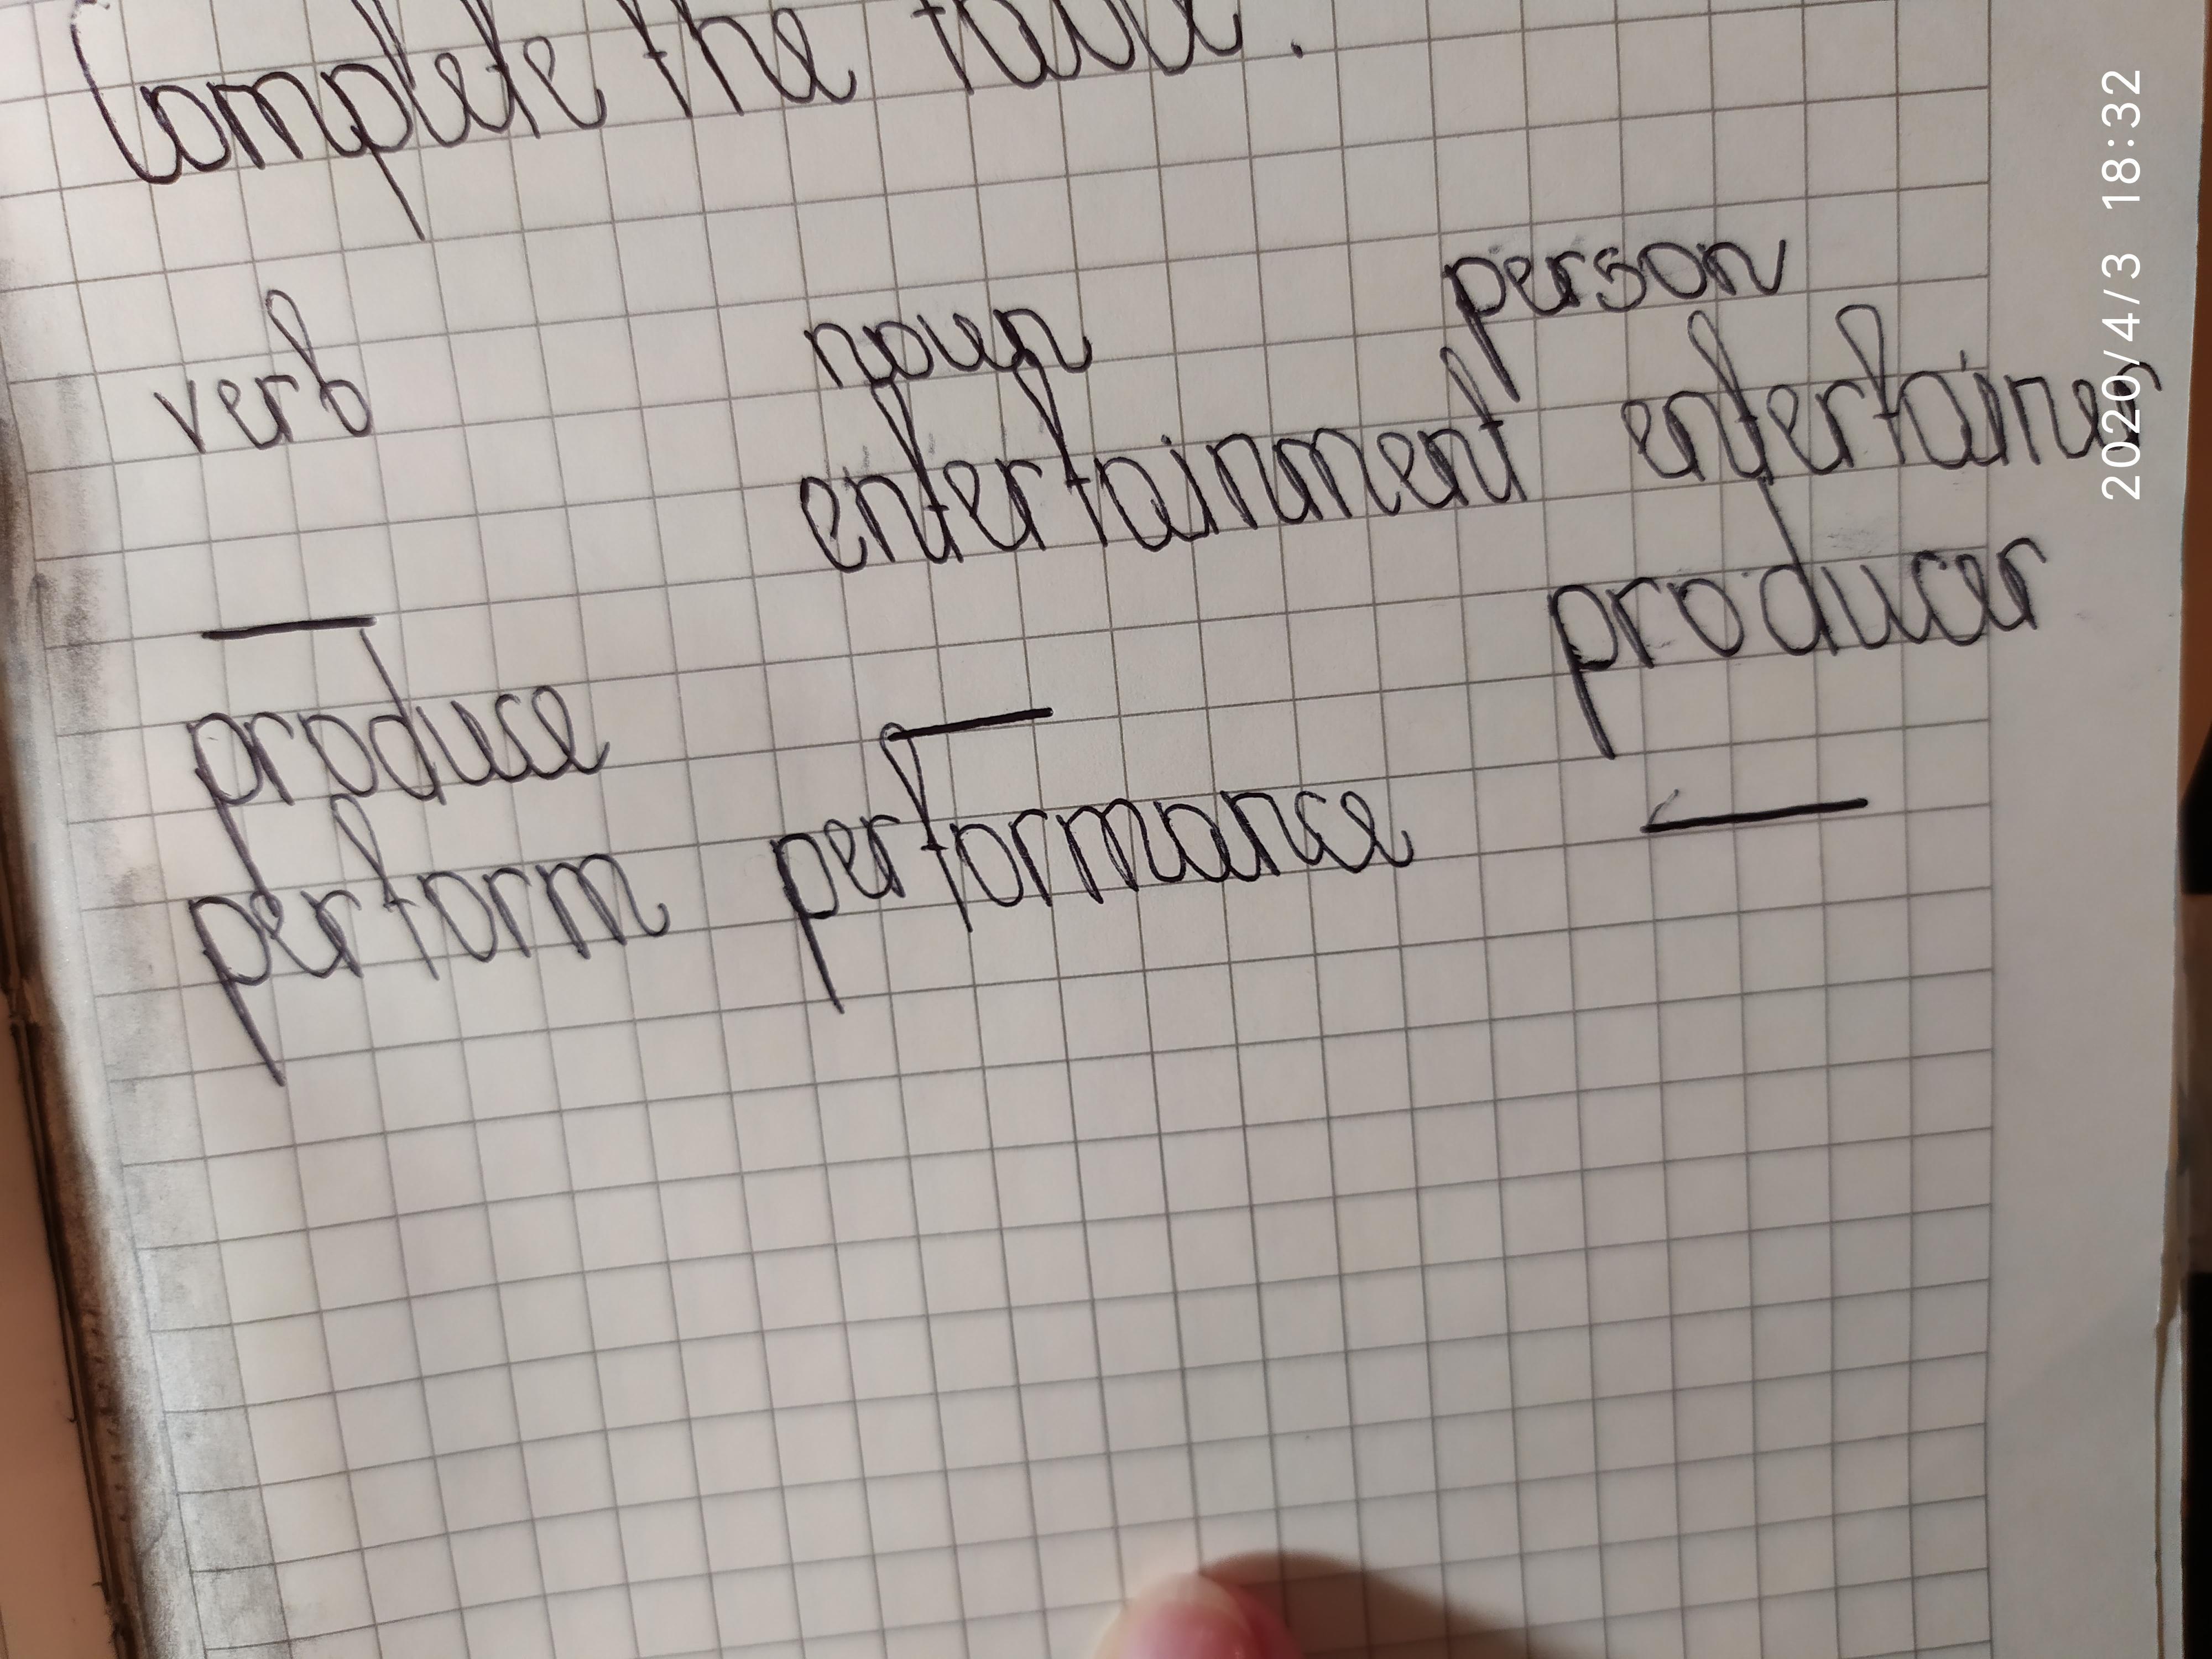 Complete the table.
verb noun person
— entertainment entertainer
produce — producer
perform performance —
2020/4/3 18:32